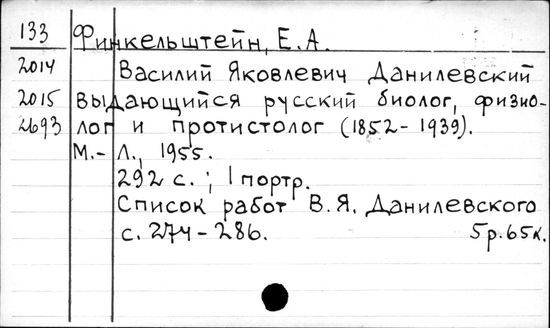 133 Финкельштейн, Е.А.
2014 Василий Яковлевич Данилевский
2015 выдающийся русский биолог, физио-
2693 лог и протистолог (1852-1939).
М.-Л., 1955.
292 с.; 1 портр.
Список работ В.Я. Данилевского
с. 274-286. 5р.65к.